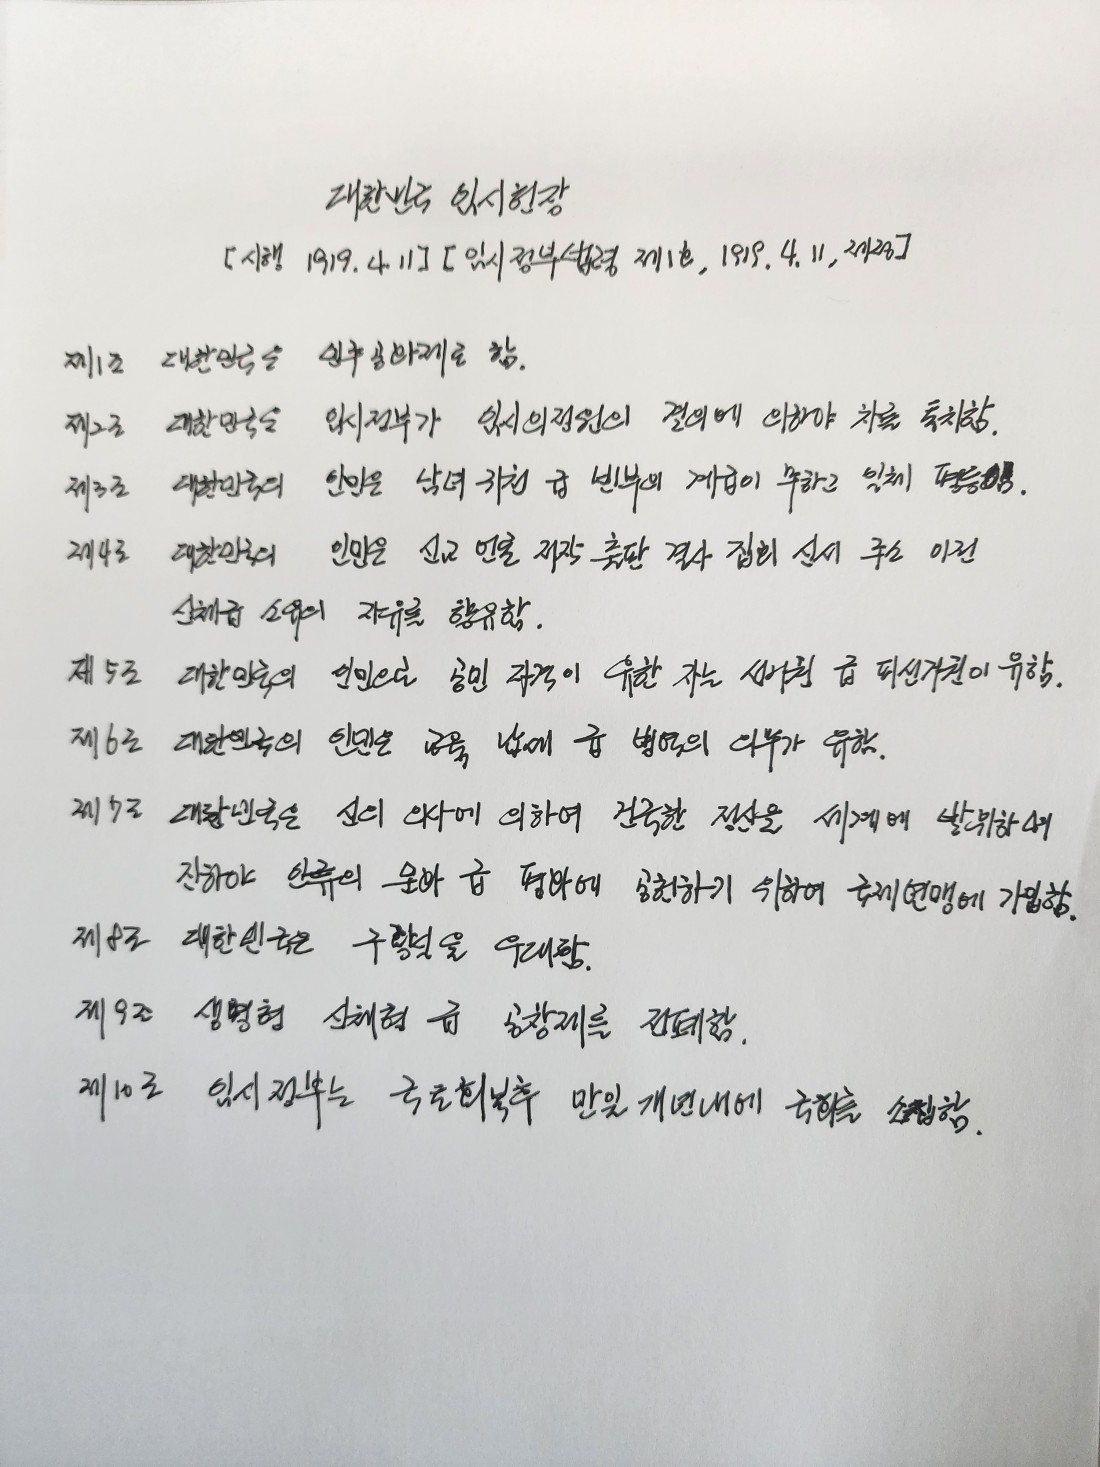 대한민국 임시헌장
[시행 1919.4.11] [임시정부법령 제1호, 1919.4.11, 제정]
제1조 대한민국은 민주공화제로 함.
제2조 대한민국은 임시정부가 임시의정원의 결의에 의하야 차를 통치함.
제3조 대한민국의 인민은 남녀 귀천 급 빈부의 계급이 무하고 일체 평등임.
제4조 대한민국의 인민은 신교 언론 저작 출판 결사 집회 신서 주소 이전
신체급 소유의 자유를 향유함.
제5조 대한민국의 인민으로 공민 자격이 유한 자는 선거권 급 피선거권이 유함.
제6조 대한민국의 인민은 교육 납세 급 병역의 의무가 유함.
제7조 대한민국은 신의 의사에 의하여 건국한 정신을 세계에 발휘하며
진하야 인류의 문화 급 평화에 공헌하기 위하여 국제연맹에 가입함.
제8조 대한민국은 구황실을 우대함.
제9조 생명형 신체형 급 공창제를 전폐함.
제10조 임시정부는 국토회복후 만일개년내에 국회를 소집함.